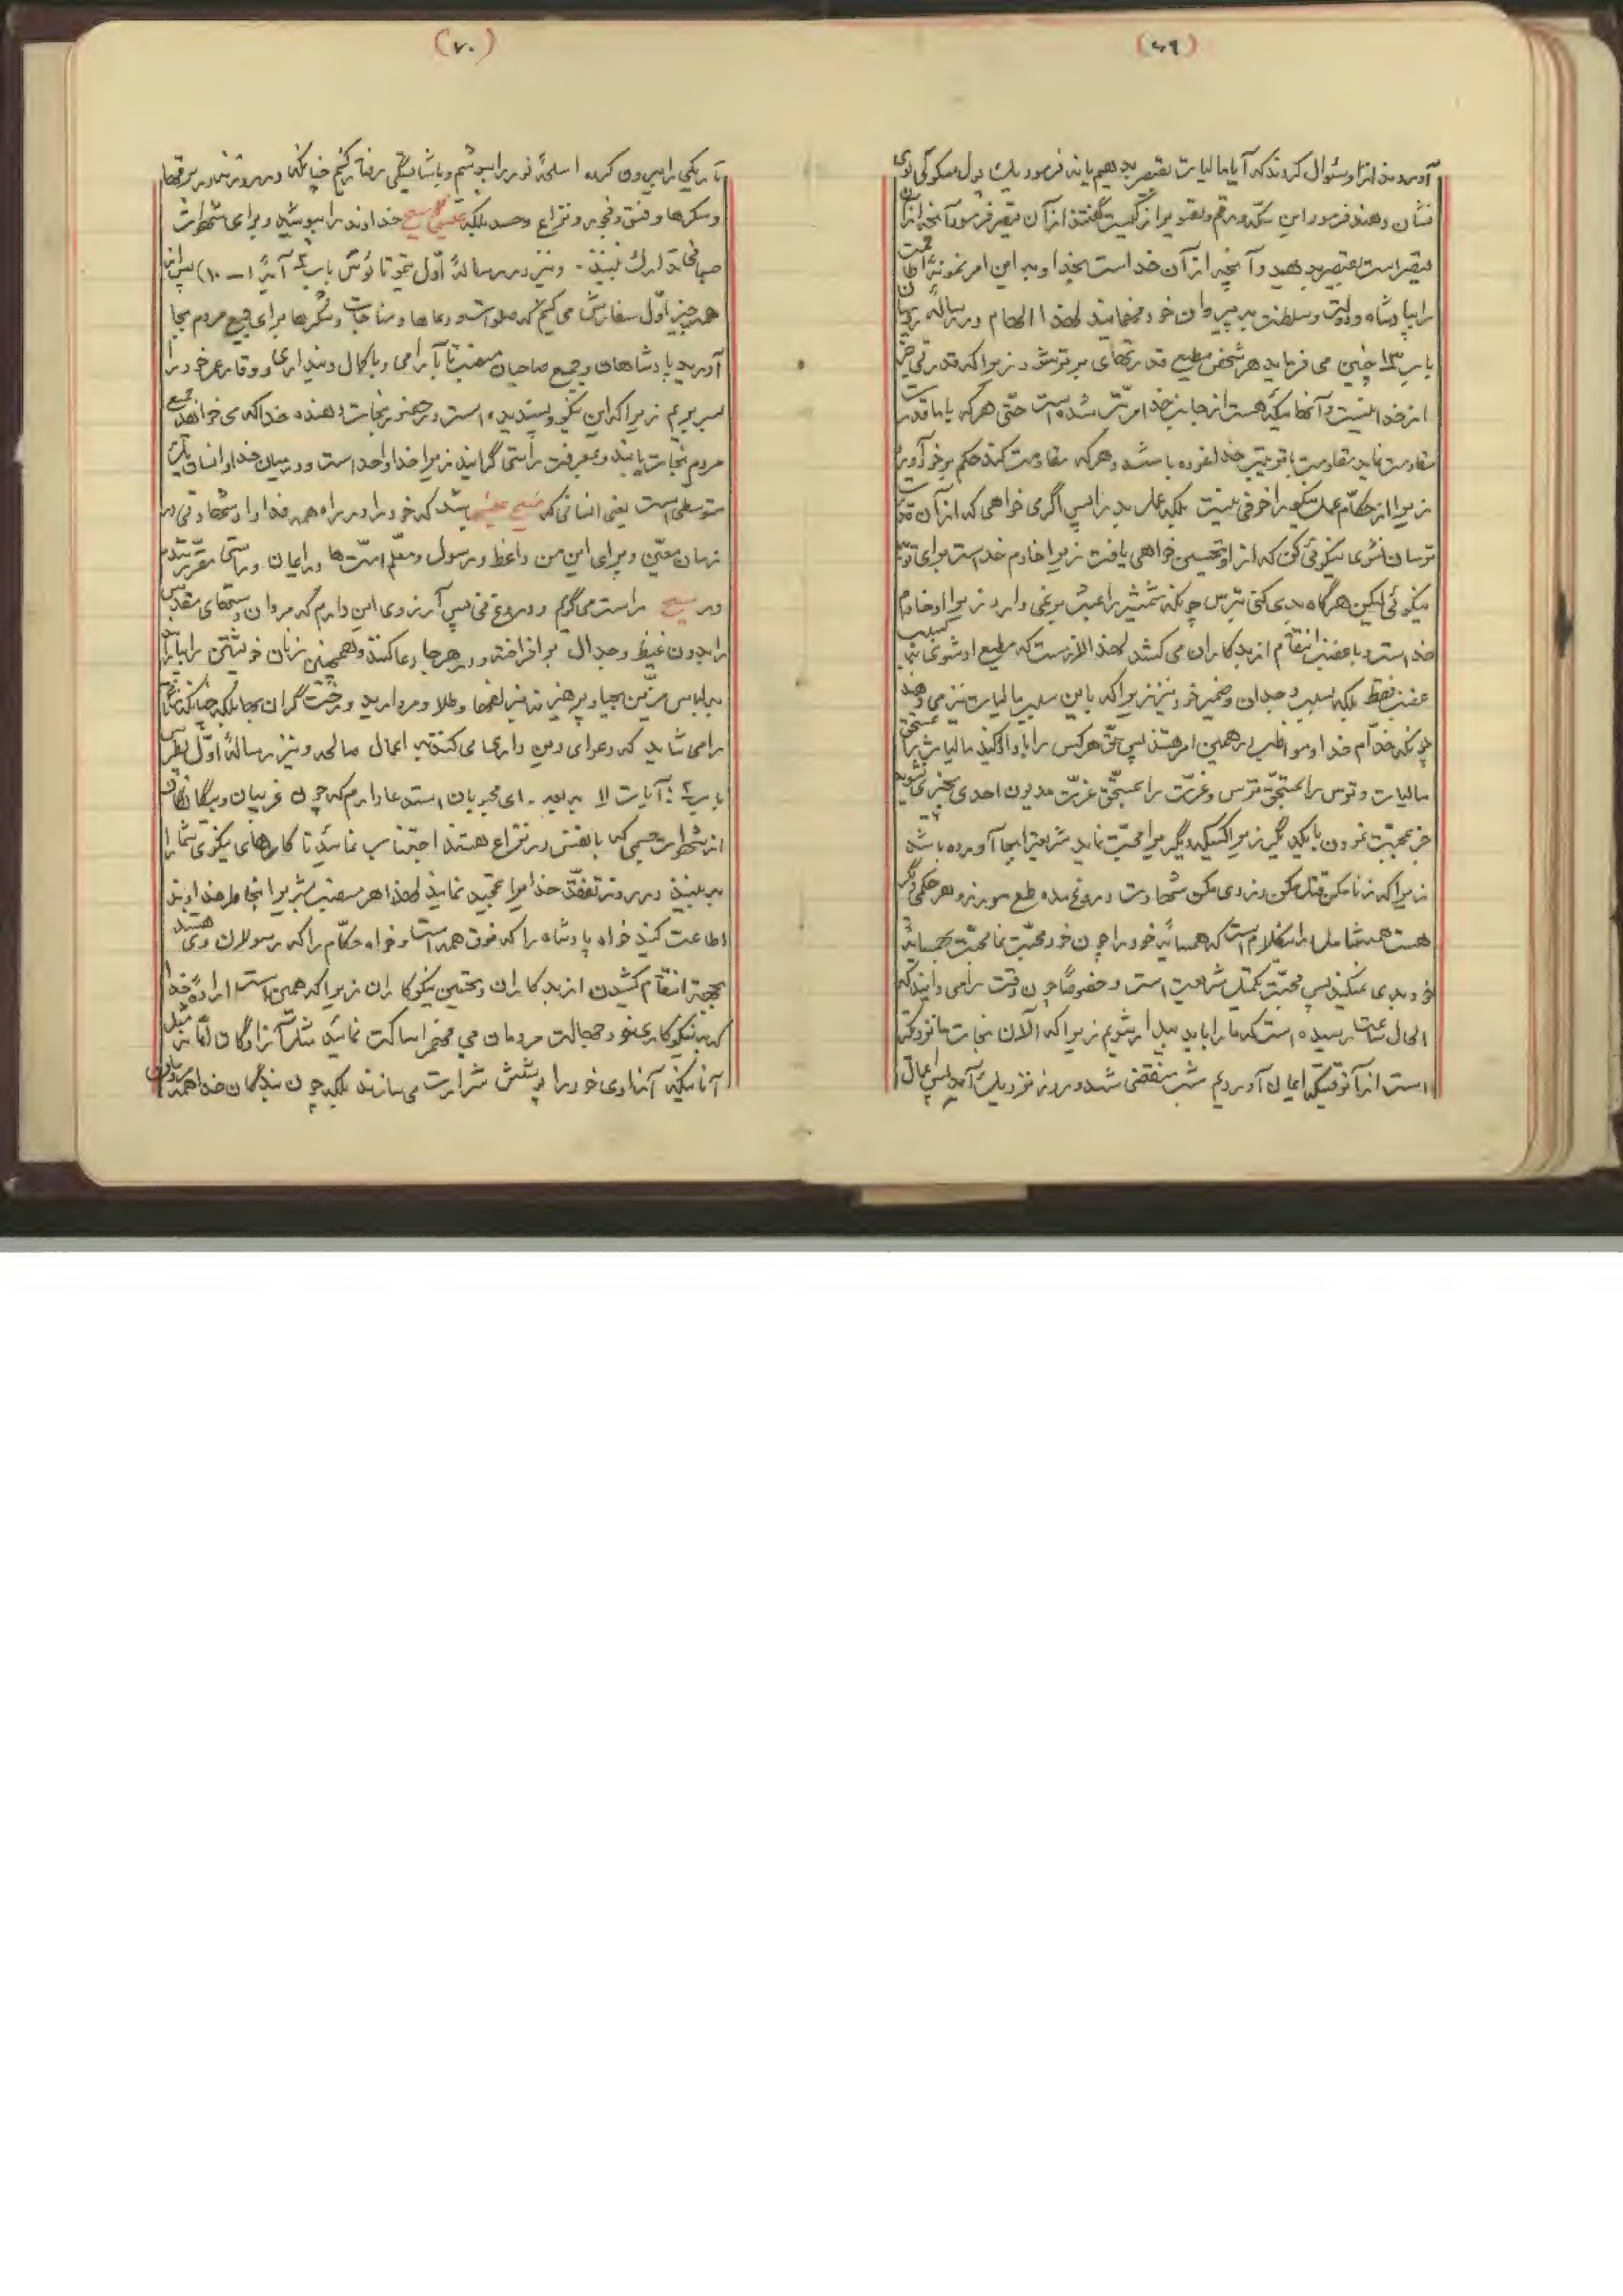 (۶۹)
آوردند از او سئوال کردند که آیا مالیات بقیصر بدهیم یا نه فرمود یک پول مسکوکی بمن
نشان دهند فرمود این سکّه و رقم و تصویر از کیست گفتند از آن قیصر فرمود آنچه از آن
قیصر است بقیصر بدهید و آنچه از آن خداست بخدا و به این امر نمونۀ اطاعت
را بپادشاه و دولت و سلطنت به پیروان خود میفهماند لهذا الهام در رسالۀ رومیان
باب ۱۳ چنین می فرماید هر شخص مطیع قدرتهای برتر بشود زیرا که قدرتی جز
از خدا نیست و آنهائیکه هست از جانب خدا مرتّب شده است حتّی هر که با قدرت
مقاومت نماید مقاومت با ترتیب خدا نموده باشد و هر که مقاومت کند حکم بر خود آورد
زیرا از حکّام عمل نیکو را خوفی نیست بلکه عمل بد را پس اگر می خواهی که از آن قدرت
ترسان نشوی نیکوئی کن که از او تحسین خواهی یافت زیرا خادم خداست برای تو به
نیکوئی لیکن هرگاه بدی کنی بترس چونکه شمشیر را عبث برنمی دارد زیرا او خادم
خداست و با غضب انتقام از بدکاران می کشد لهذا لازم است که مطیع او شوی نه بسبب
غضب فقط بلکه بسبب وجدان و ضمیر خود نیز زیرا که باین سبب مالیات نیز می دهید
چونکه خدّام خدا و مواظب در همین امر هستند پس حقّ هرکس را باو ادا کنید مالیات را بمستحق
مالیات و ترس را بمستحقّ ترس و عزّت را بمستحقّ عزّت مدیون احدی بچیزی نشوید
جز بمحبّت نمودن با یکدیگر زیرا کسیکه دیگری را محبّت نماید شریعت را بجا آورده باشد
زیرا که زنا مکن قتل مکن دزدی مکن شهادت دروغ مده طمع مورز و هر حکمی دیگر
هست همه شامل است در این کلام است که همسایۀ خود را چون خود محبّت نما محبّت بهمسایۀ
خود بدی نمیکند پس محبّت تکمیل شریعت است و خصوصاً چون وقت را می دانید که
الحال ساعت رسیده است که ما را باید بیدار شویم زیرا که الآن نجات ما نزدیکتر
است از آنوقتیکه ایمان آوردیم شب منقضی شد و روز نزدیک آمد پس اعمال
(۷۰)
تاریکی را بیرون کرده اسلحۀ نور را بپوشیم و با شایستگی رفتار کنیم چنانکه در روز نه در بزمها
و سکرها و فسق و فجور و نزاع و حسد بلکه عیسی مسیح خداوند را بپوشید و برای شهوات
جسمانی تدارک نبینید - و نیز در رسالۀ اوّل تیموتاؤس باب ۲ آیۀ (۱ – ۱۰) پس از
همه چیز اوّل سفارش می کنیم که صلوات و دعاها و مناجات و شکرها برای جمیع مردم بجا
آورید پادشاهان و جمیع صاحبان منصب تا بآرامی و با کمال دینداری و وقار عمر خود را
بسر بریم زیرا که این نیکو و پسندیده است در حضور نجات دهنده خدا که می خواهد جمیع
مردم نجات یابند و بمعرفت راستی گرایند زیرا خدا واحد است و در میان خدا و انسان یک
متوسطی است یعنی انسانی که مسیح عیسی باشد که خود را در راه همه فدا داد شهادتی در
زمان معیّن و برای این من واعظ و رسول و معلّم امّت ها در ایمان و راستی مقرّر شدم
در مسیح راست می گویم و دروغ نی پس آرزوی این دارم که مردان دستهای مقدّس
را بدون غیظ و جدال بر افراخته در هر جا دعا کنند و همچنین زنان خویشتن را بیارایند
به لباس مزّین بحیا و پرهیز نه بزلفها و طلا و مروارید و رخت گران بها بلکه چنانکه زنان
را می شاید که دعوای دین داری می کنند به اعمال صالحه و نیز رسالۀ اوّل پطرس
باب ۲: آیات ۱۱ به بعد - ای محبوبان استدعا دارم که چون غریبان و بیگانگان
از شهوات جسمی که با نفس در نزاع هستند اجتناب نمائید تا کارهای نیکوی شما را
به بینند در روز تفقّد خدا را تمجید نمایند لهذا هر منصب بشری را بخاطر خداوند
اطاعت کنید خواه پادشاه را که فوق همه است و خواه حکّام را که رسولان وی هستند
بجهة انتقام کشیدن از بدکاران و تحسین نیکوکاران زیرا که همین است ارادۀ خدا
که به نیکوکاری خود جهالت مردمان بی فهم را ساکت نمائید مثل آزادگان امّا نه مثل
آنانیکه آزادی خود را پوشش شرارت می سازند بلکه چون بندگان خدا همه